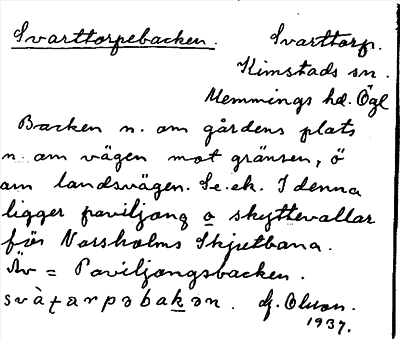 Svarttorpebacken. Svarttorp.
Kimstads sn.
Memmings hd. Ögl
Backen n. om gårdens plats
n. om vägen mot gränsen, ö
om landsvägen. Se. ek. I denna
ligger paviljong o skyttevallar
för Norsholms Skjutbana.
Äv = Paviljongsbacken.
svàṭarpəbakən. Olson.
1937.